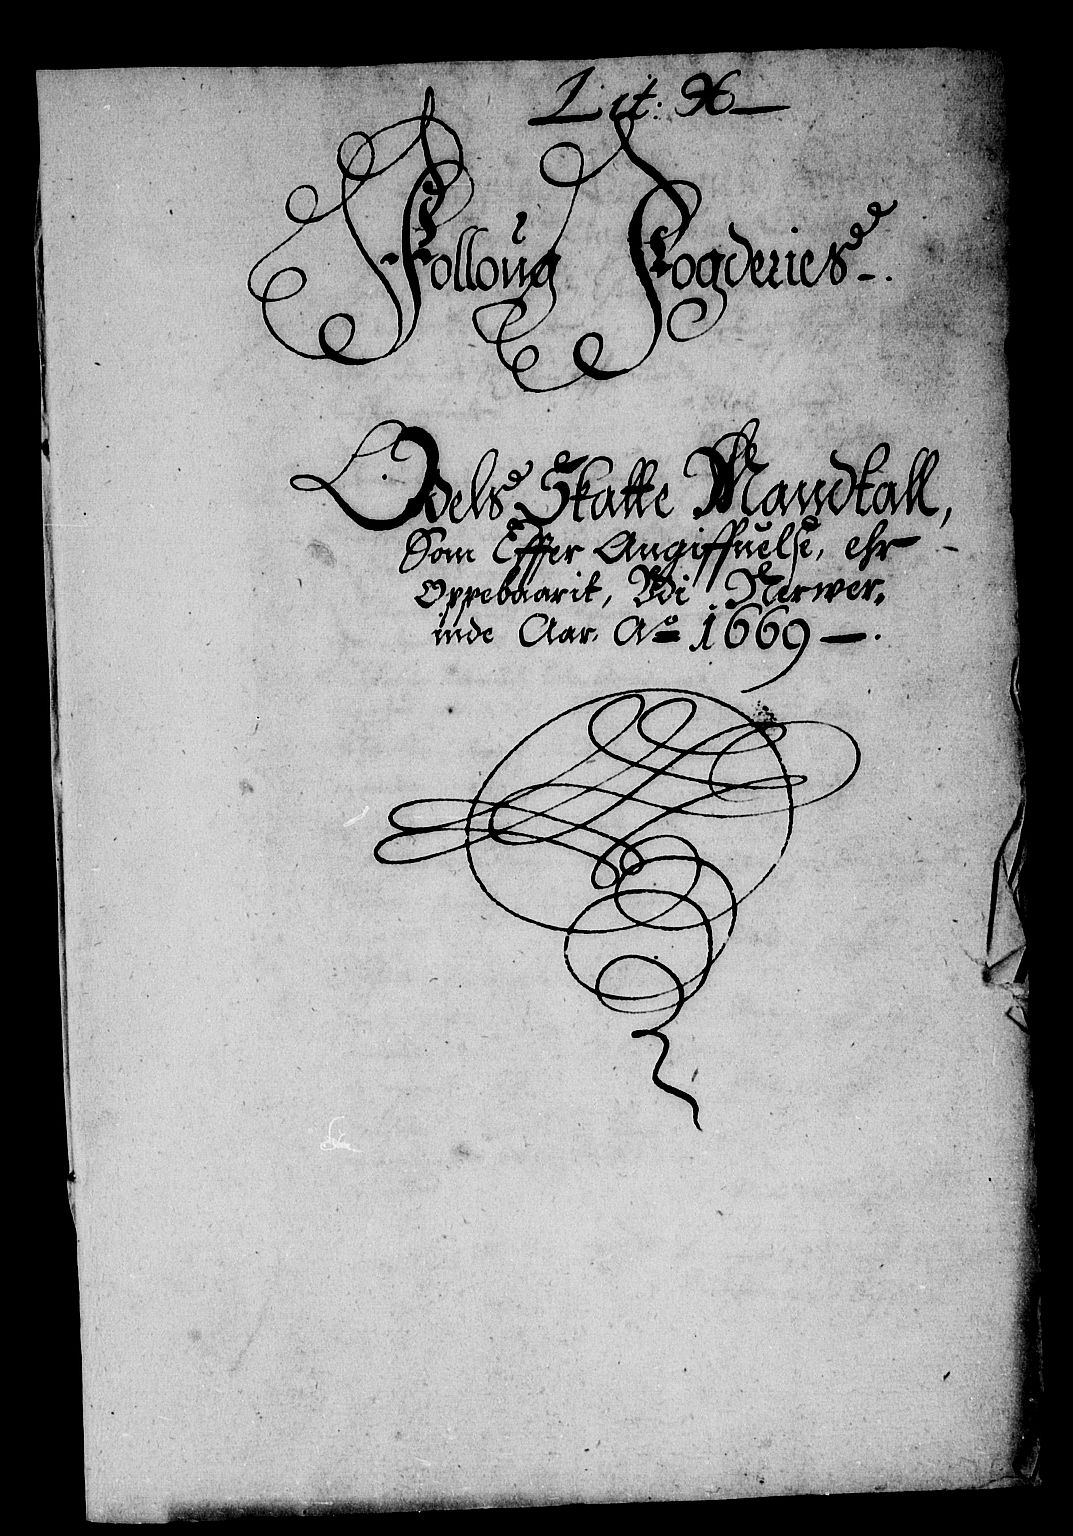 Lit:
Folloug Fogderies.
Odels Skatte Mandtall,
Som Effter Angiffuelse, ehr
Oppebaarit, Udi Nerwer,
inde Aar. Aō 1669.